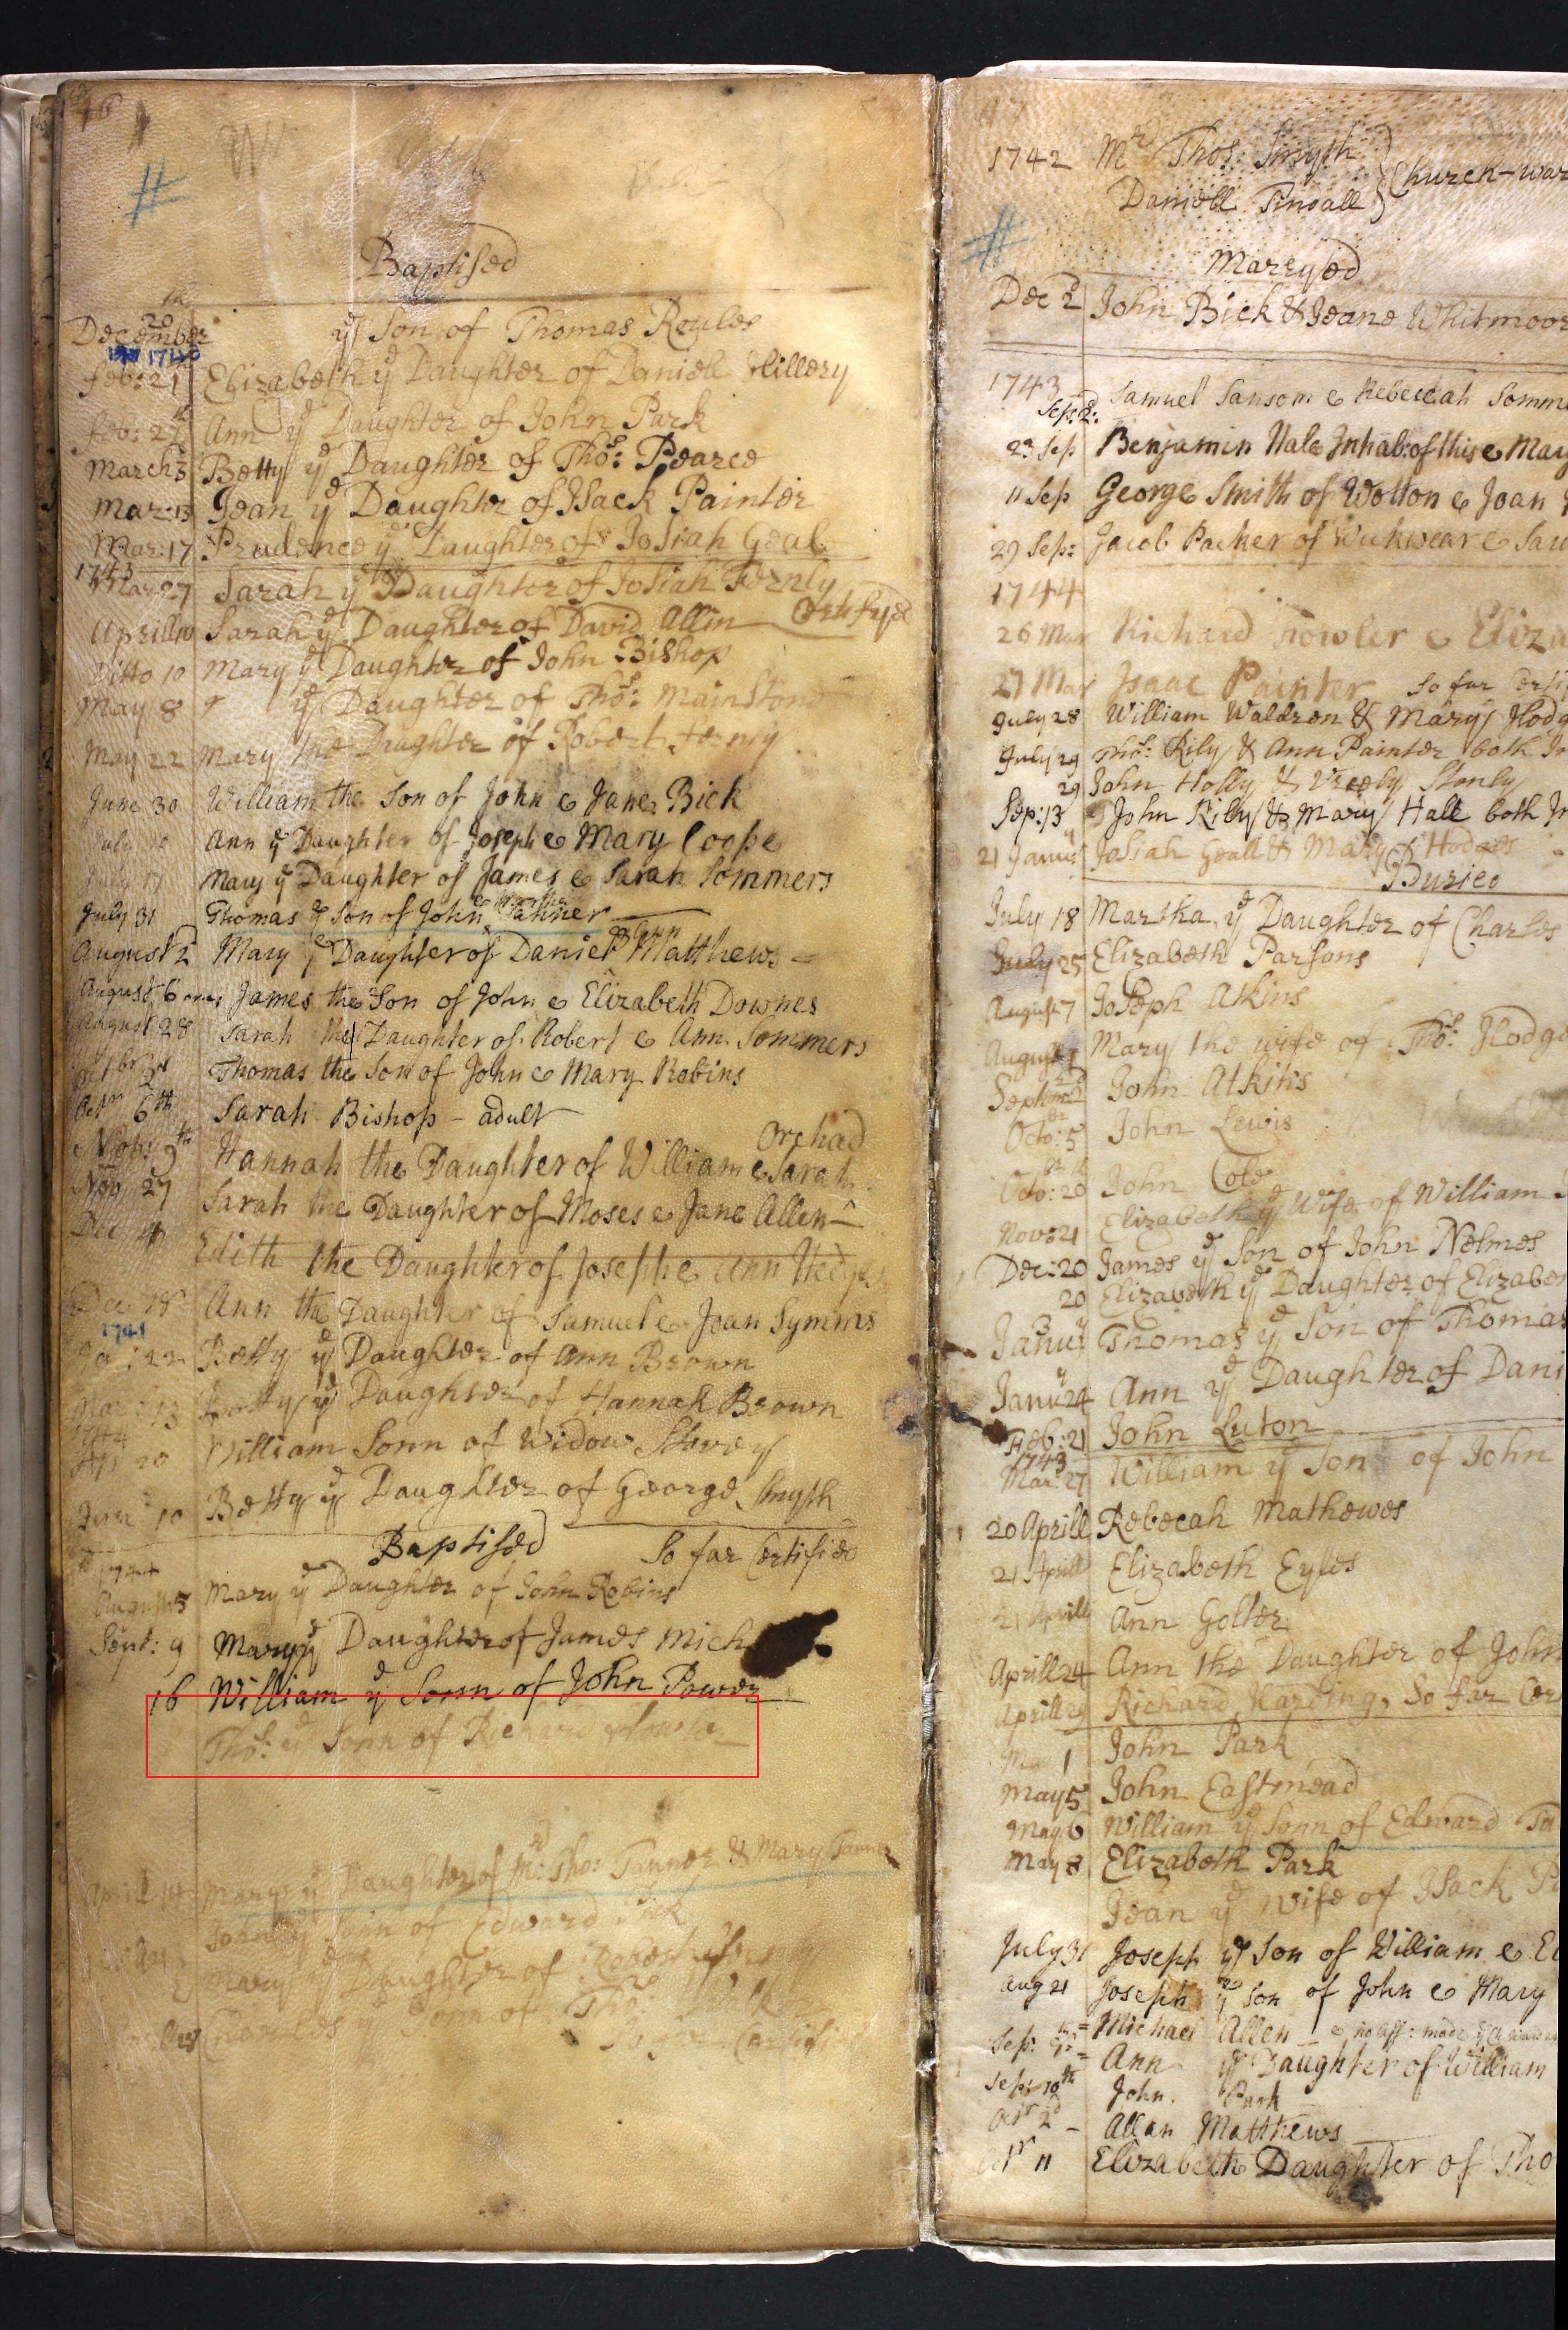 Baptised
December 20 yᵉ Son of Thomas Reyles
feb: 21 Elizabeth yᵉ Daughter of Daniell Hillery
feb: 27 Ann yᵉ Daughter of John Park
March 3 Betty yᵉ Daughter of Thoˢ: Pearce
Mar: 13 Jean yᵉ Daughter of Isack Painter
Mar: 17 Prudence yᵉ Daughter of Josiah Geale
1743
Mar 27 Sarah yᵉ Daughter of Josiah Fernly
Aprill 10 Sarah yᵉ Daughter of David Allin Certifyed
Ditto 10 Mary yᵉ Daughter of John Bishop
May 8 yᵉ Daughter of Thoˢ: Mainston
May 22 Mary the Daughter of Robert
June 30 William the Son of John & Jane Bick
July Ann yᵉ Daughter of Joseph & Mary Coope
July 17 Mary yᵉ Daughter of James & Sarah Sommers
July 31 Thomas yᵉ Son of John Tanner
August 2 Mary yᵉ Daughter of Daniel Matthews
August 6 James the Son of John & Elizabeth Downes
August 28 Sarah the Daughter of Robert & Ann Sommers
Thomas the Son of John & Mary Robins
6th Sarah Bishop - adult
Orchad
9th Hannah the Daughter of William & Sarah
Nov 27 Sarah the Daughter of Moses & Jane Allen
Dec 4 Edith the Daughter of Joseph & Ann
Dec Ann the Daughter of Samuel & Joan Symms
Betty yᵉ Daughter of Ann Brown
Mar: 13 Betty yᵉ Daughter of Hannah Brown
1744
20 William Sonn of Widow
10 Betty yᵉ Daughter of George Smyth
Baptised So far Certified
1744
August 5 Mary yᵉ Daughter of John Robins
Sept: 9 Mary yᵉ Daughter of James Mich
16 William yᵉ Sonn of John Power
Thoˢ: yᵉ Sonn of Richard
April 14 Mary yᵉ Daughter of Mʳ: Tho: Tanner & Mary Tanner
John yᵉ Sonn of Edward
Mary yᵉ Daughter of Robert
Sonn of
1742 Mʳ Thos: Smyth
Daniell Tinsall } Church-war
Marryed
Dec 2 John Bick & Jeane Whitmoor
1743
Sep: 2: Samuel Sansom & Rebeccah Somm
23 Sep Benjamin Hale Inhab: of this & Mary
11 Sep George Smith of Wotton & Joan
29 Sep: Jacob Parker of Wickwear & Sar
1744
26 Mar Richard Fowler & Eliza
27 Mar Isaac Painter So far
July 28 William Waldron & Mary Hodg
July 29 Thoˢ: Rily & Ann Painter both In
29 John Holly & Stonly
Sep: 13 John Rily & Mary Hall both In
21 Janu Josiah Geall & Mary Hodges
Buried
July 18 Martha yᵉ Daughter of Charles
July 25 Elizabeth Parsons
August 7 Joseph Atkins
August Mary the wife of Thoˢ: Hodge
Septem John Atkins
Octo: 5 John Lewis
Octo: 20 John Cole
Nov: 21 Elizabeth yᵉ Wife of William
Dec: 20 James yᵉ Son of John Nelmes
20 Elizabeth yᵉ Daughter of Elizabe
Janu 3 Thomas yᵉ Son of Thomas
Janu 24 Ann yᵉ Daughter of Dani
Feb: 21 John Luton
1743
Mar: 27 William yᵉ Son of John
20 Aprill Rebecah Mathewes
21 Aprill Elizabeth Eyles
21 Aprill Ann Golter
Aprill 24 Ann the Daughter of John
Aprill 29 Richard Harding, So far Cer
May 1 John Park
May 5 John Eastmead
May 6 William yᵉ Sonn of Edward
May 8 Elizabeth Park
Jean yᵉ Wife of Isack
July 31 Joseph yᵉ Son of William & El
Aug 21 Joseph yᵉ Son of John & Mary
Sep: Michael Allen no aff: made
Ann yᵉ Daughter of William
Sep: 19th John Park
2d Allan Matthews
11 Elizabeth Daughter of Tho